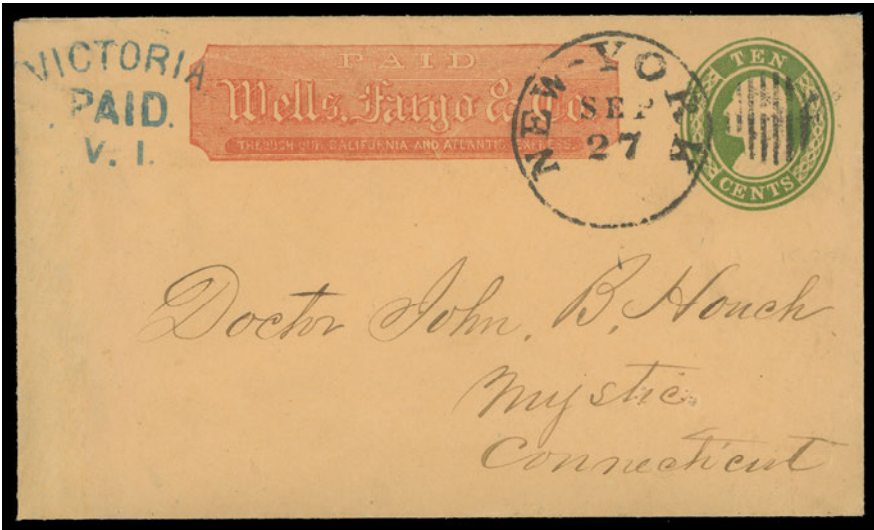 VICTORIA
PAID.
V. I.
PAID
Wells, Fargo & Co.
THROUGH OUR CALIFORNIA AND ATLANTIC EXPRESS.
NEW-YORK
SEP
27
TEN
CENTS
Doctor John. B. Houch
Mystic
Connecticut